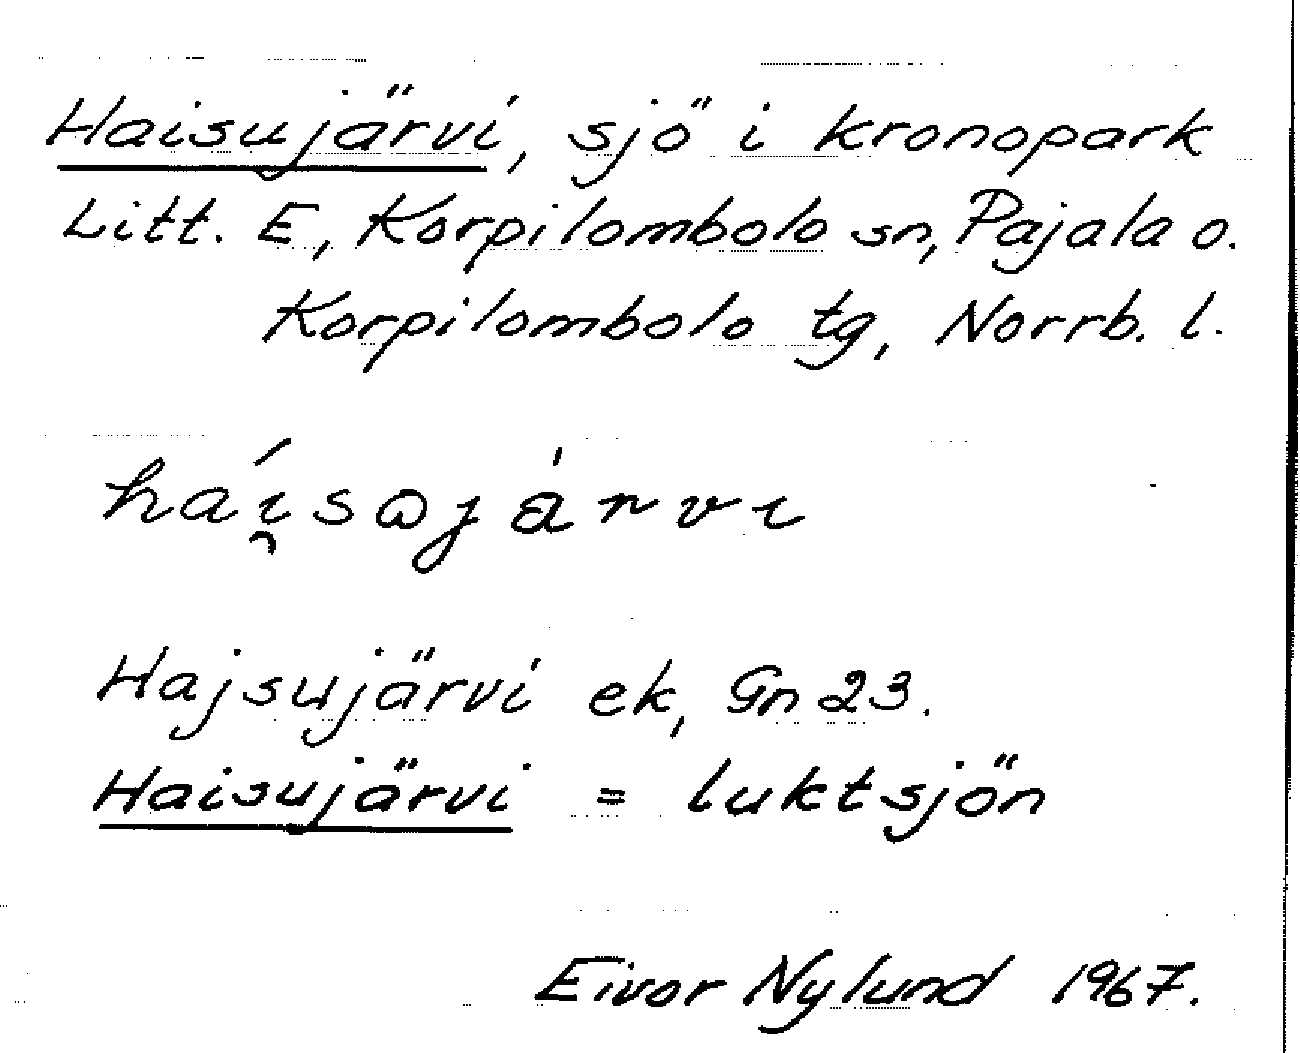 Haisujärvi, sjö i kronopark
Litt. E, Korpilombolo sn, Pajala o.
Korpilombolo tg, Norrb. l.
Hajsujärvi ek, Gn 23.
Haisujärvi = luktsjön
Eivor Nylund 1967.